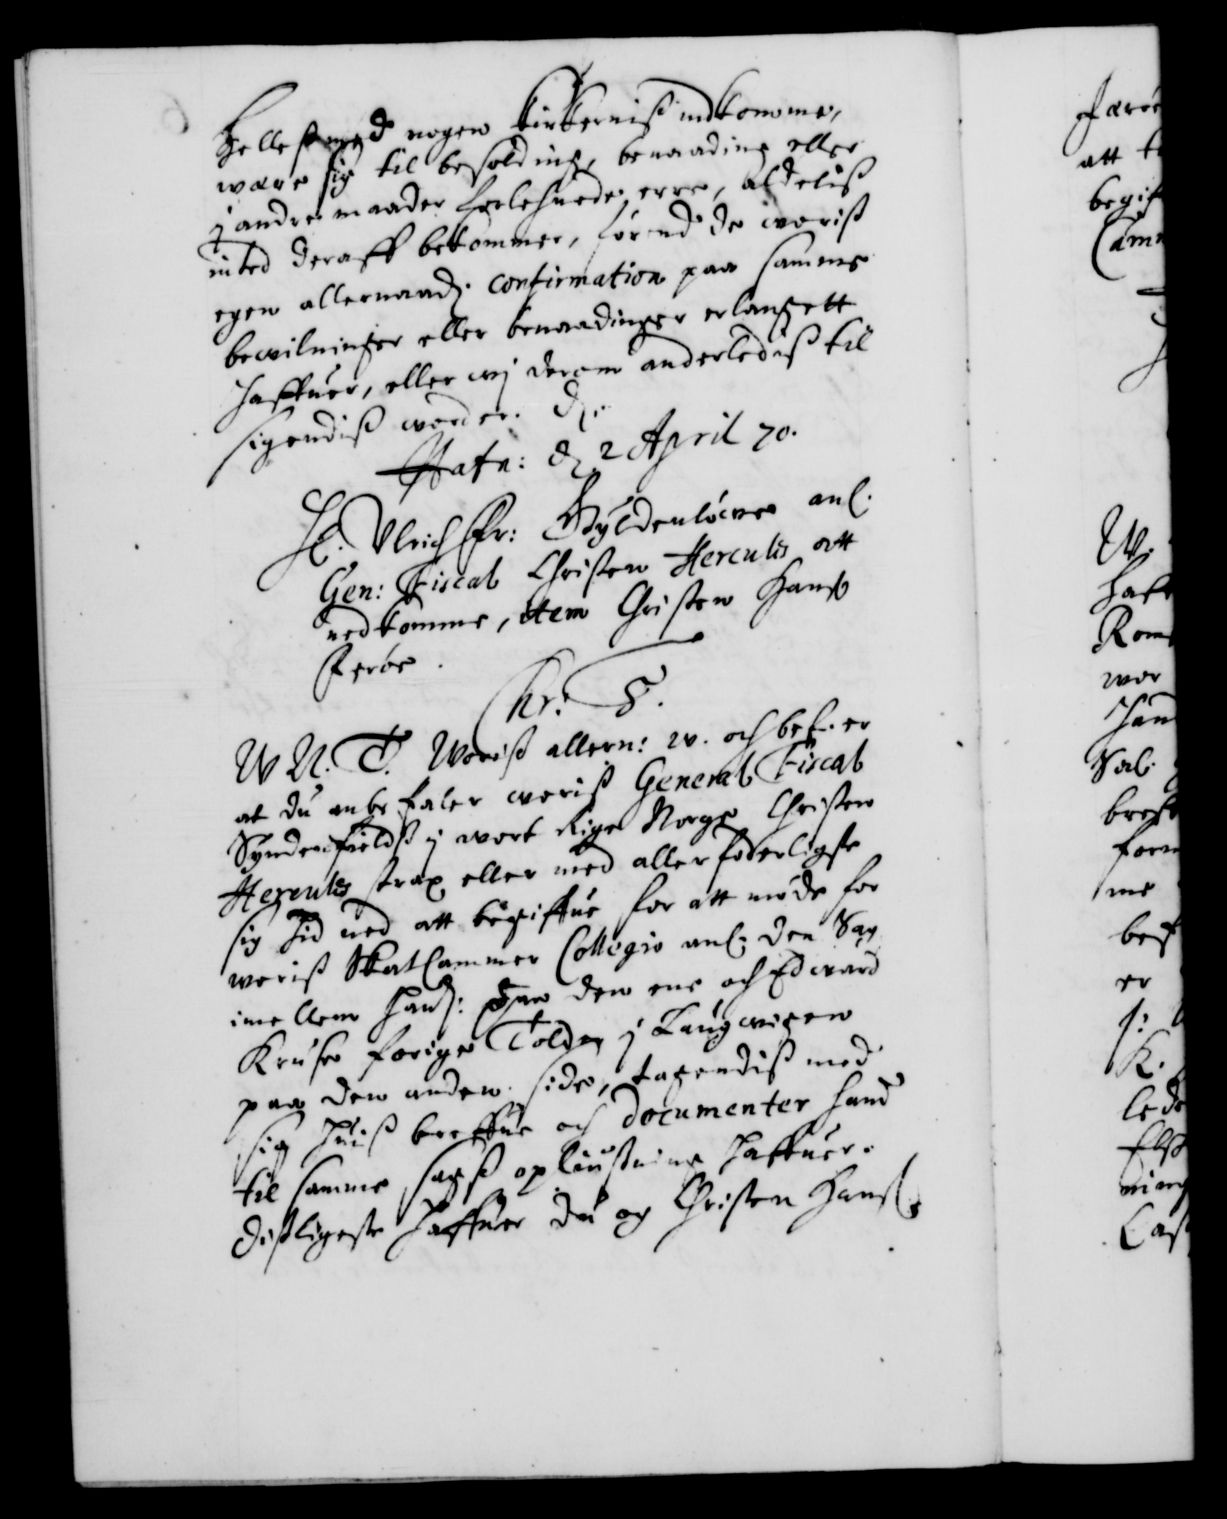 Helle st med nogen Kirkerniß indkomme,
være sig til besolding, benaading eller
j andre maader forlehnede erre, aldeliß
inted deraff bekommer, førend de woriß
egen allernaad: confirmation paa samme
bewilninger eller benaadinger erlangett
haffuer, eller wj derom anderlediß til
sigendiß worder. d:
Hafn: d 2 April 70.
H. Ulrich Fr: Gyldenløwe anl.
Gen: Fiscal Christen Herculis att
nedkomme, item Christen Hanß
Ferøe.
Chr: 5.
W U. T. Woriß allern: w. och bef. er
at du anbefaler woriß General Fiscal
Syndenfieldß j wort Rige Norge Christen
Herculis strax eller med allerforderligste
sig hid ned att begiffue for att møde for
woriß Skatcammer Collegio anl: den Sag
imellem hanß: paa den ene och Edward
Kruse forige Tolder j Laugwigen
paa den anden side, tagendiß med
sig huiß breffue och documenter hand
til samme sagß opliußning haffuer.
Disligeste haffuer du og Christen Hanß: